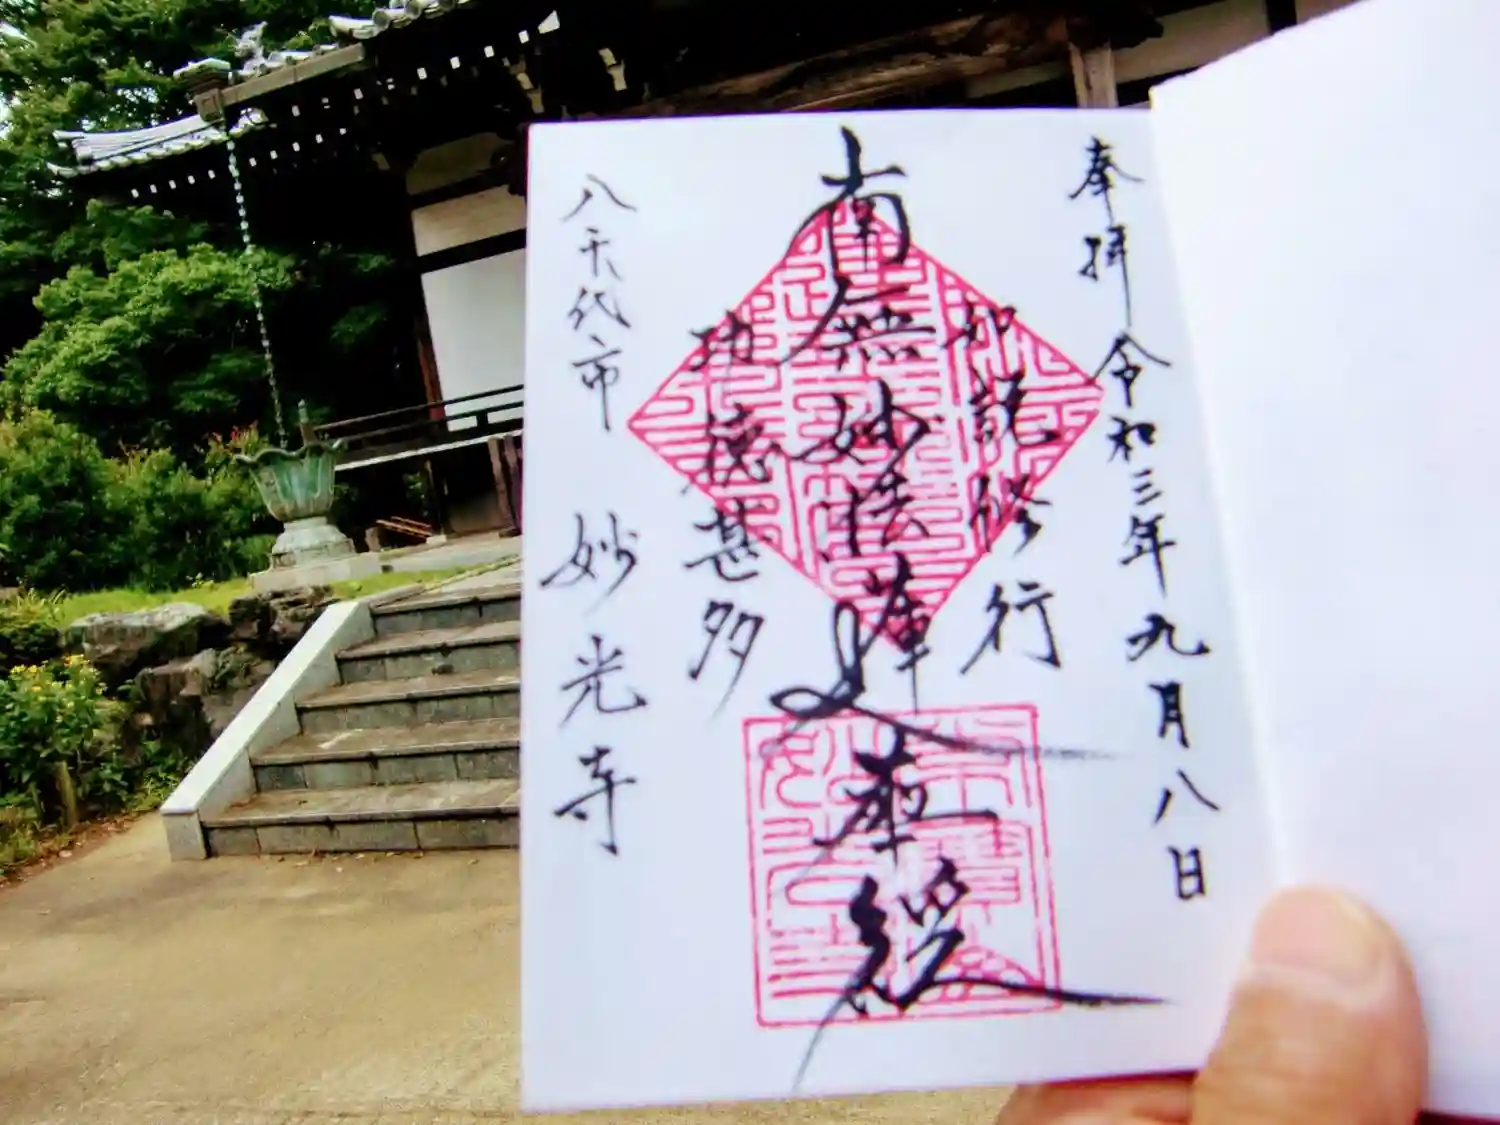 奉拝 令和三年九月八日
如説修行
南無妙法蓮華経
功徳甚多
八千代市 妙光寺